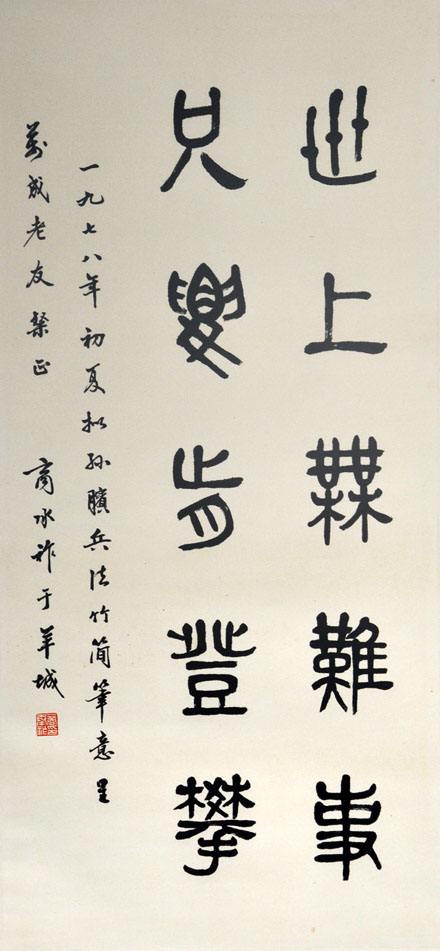 世上無難事
只要肯登攀
一九七八年初夏拟孙臏兵法竹简筆意呈
萬成老友粲正 商承祚于羊城